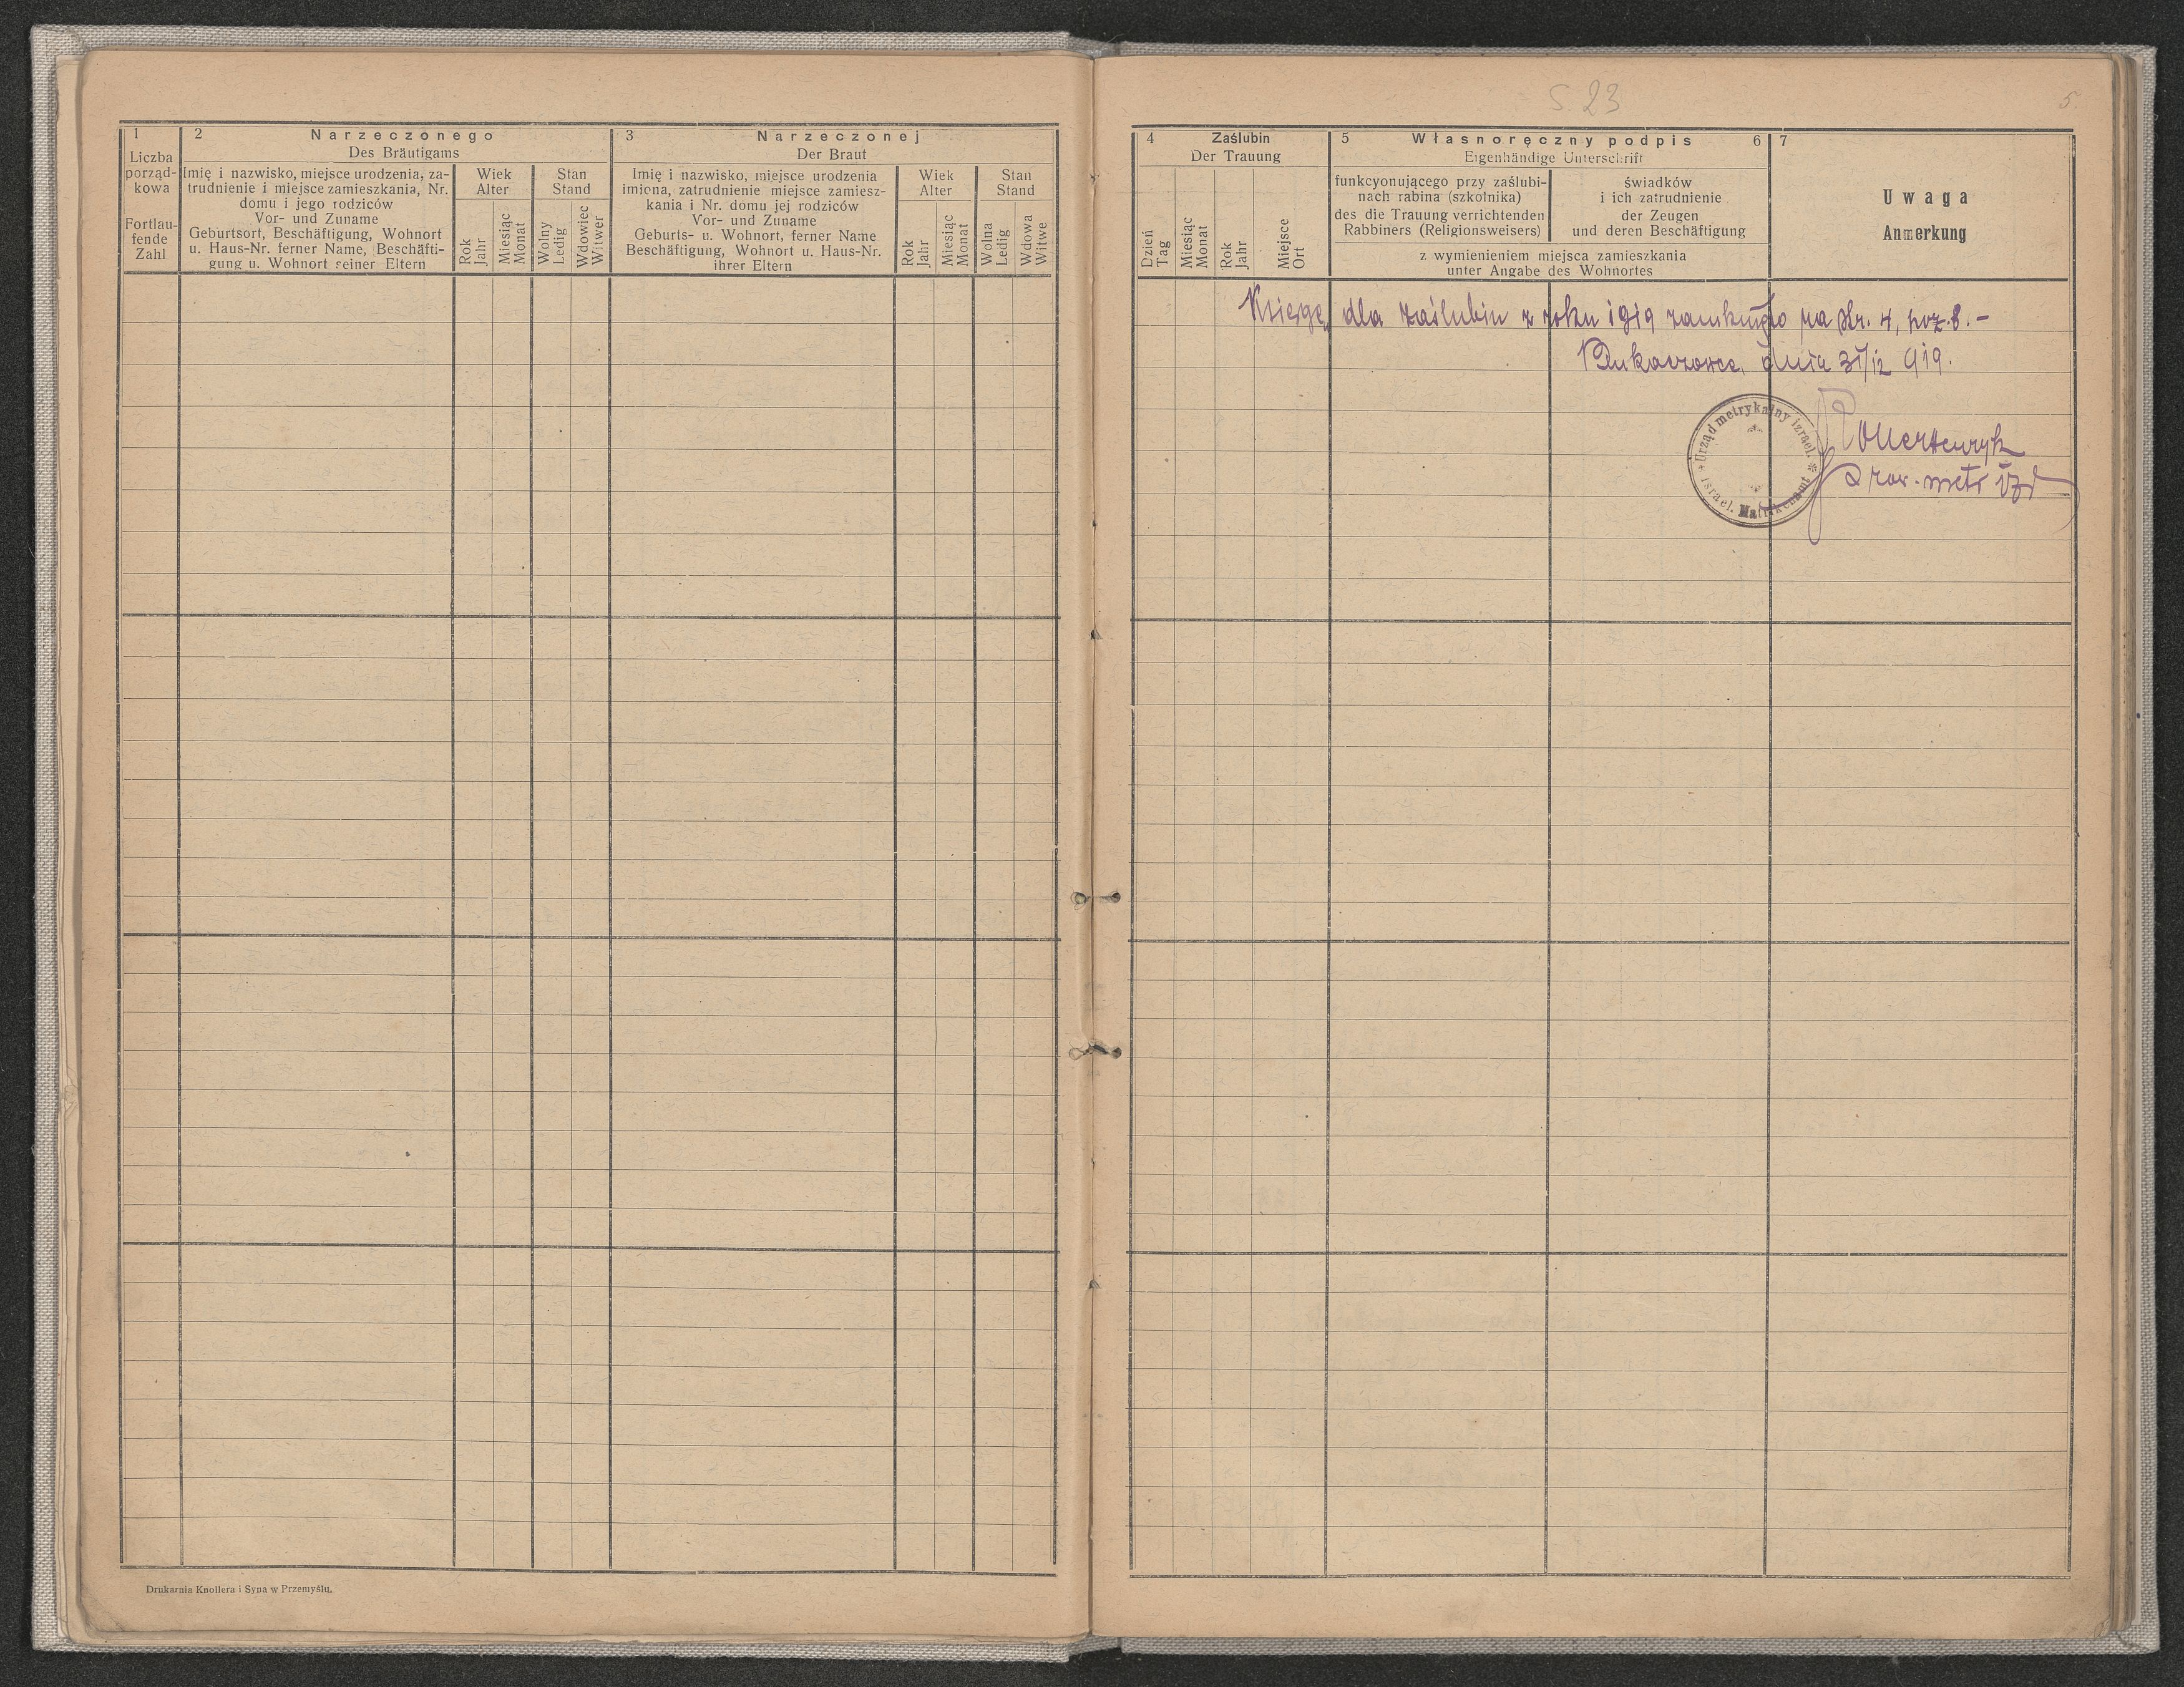 1
Liczba
porząd-
kowa
Fortlau-
fende
Zahl
2 Narzeczonego
Des Bräutigams
Imię i nazwisko, miejsce urodzenia, za-
trudnienie i miejsce zamieszkania, Nr.
domu i jego rodziców
Vor- und Zuname
Geburtsort, Beschäftigung, Wohnort
u. Haus-Nr. ferner Name, Beschäfti-
gung u. Wohnort seiner Eltern
Wiek
Alter
Rok
Jahr
Miesiąc
Monat
Stan
Stand
Wolny
Ledig
Wdowiec
Witwer
3 Narzeczonej
Der Braut
Imię i nazwisko, miejsce urodzenia
imiona, zatrudnienie miejsce zamiesz-
kania i Nr. domu jej rodziców
Vor- und Zuname
Geburts- u. Wohnort, ferner Name
Beschäftigung, Wohnort u. Haus-Nr.
ihrer Eltern
Wiek
Alter
Rok
Jahr
Miesiąc
Monat
Stan
Stand
Wolna
Ledig
Wdowa
Witwe
Drukarnia Knollera i Syna w Przemyślu.
S. 23
5.
4 Zaślubin
Der Trauung
Dzień
Tag
Miesiąc
Monat
Rok
Jahr
Miejsce
Ort
5 Własnoręczny podpis 6
Eigenhändige Unterschrift
funkcyonującego przy zaślubi-
nach rabina (szkolnika)
des die Trauung verrichtenden
Rabbiners (Religionsweisers)
świadków
i ich zatrudnienie
der Zeugen
und deren Beschäftigung
z wymienieniem miejsca zamieszkania
unter Angabe des Wohnortes
7
Uwaga
Anmerkung
Księgę dla zaślubin z roku 1919 zamknięto na str. 4, poz. 8. -
Bukaczowce, dnia 31/12 919.
Urząd metrykalny izrael.
Israel. Matrikenamt